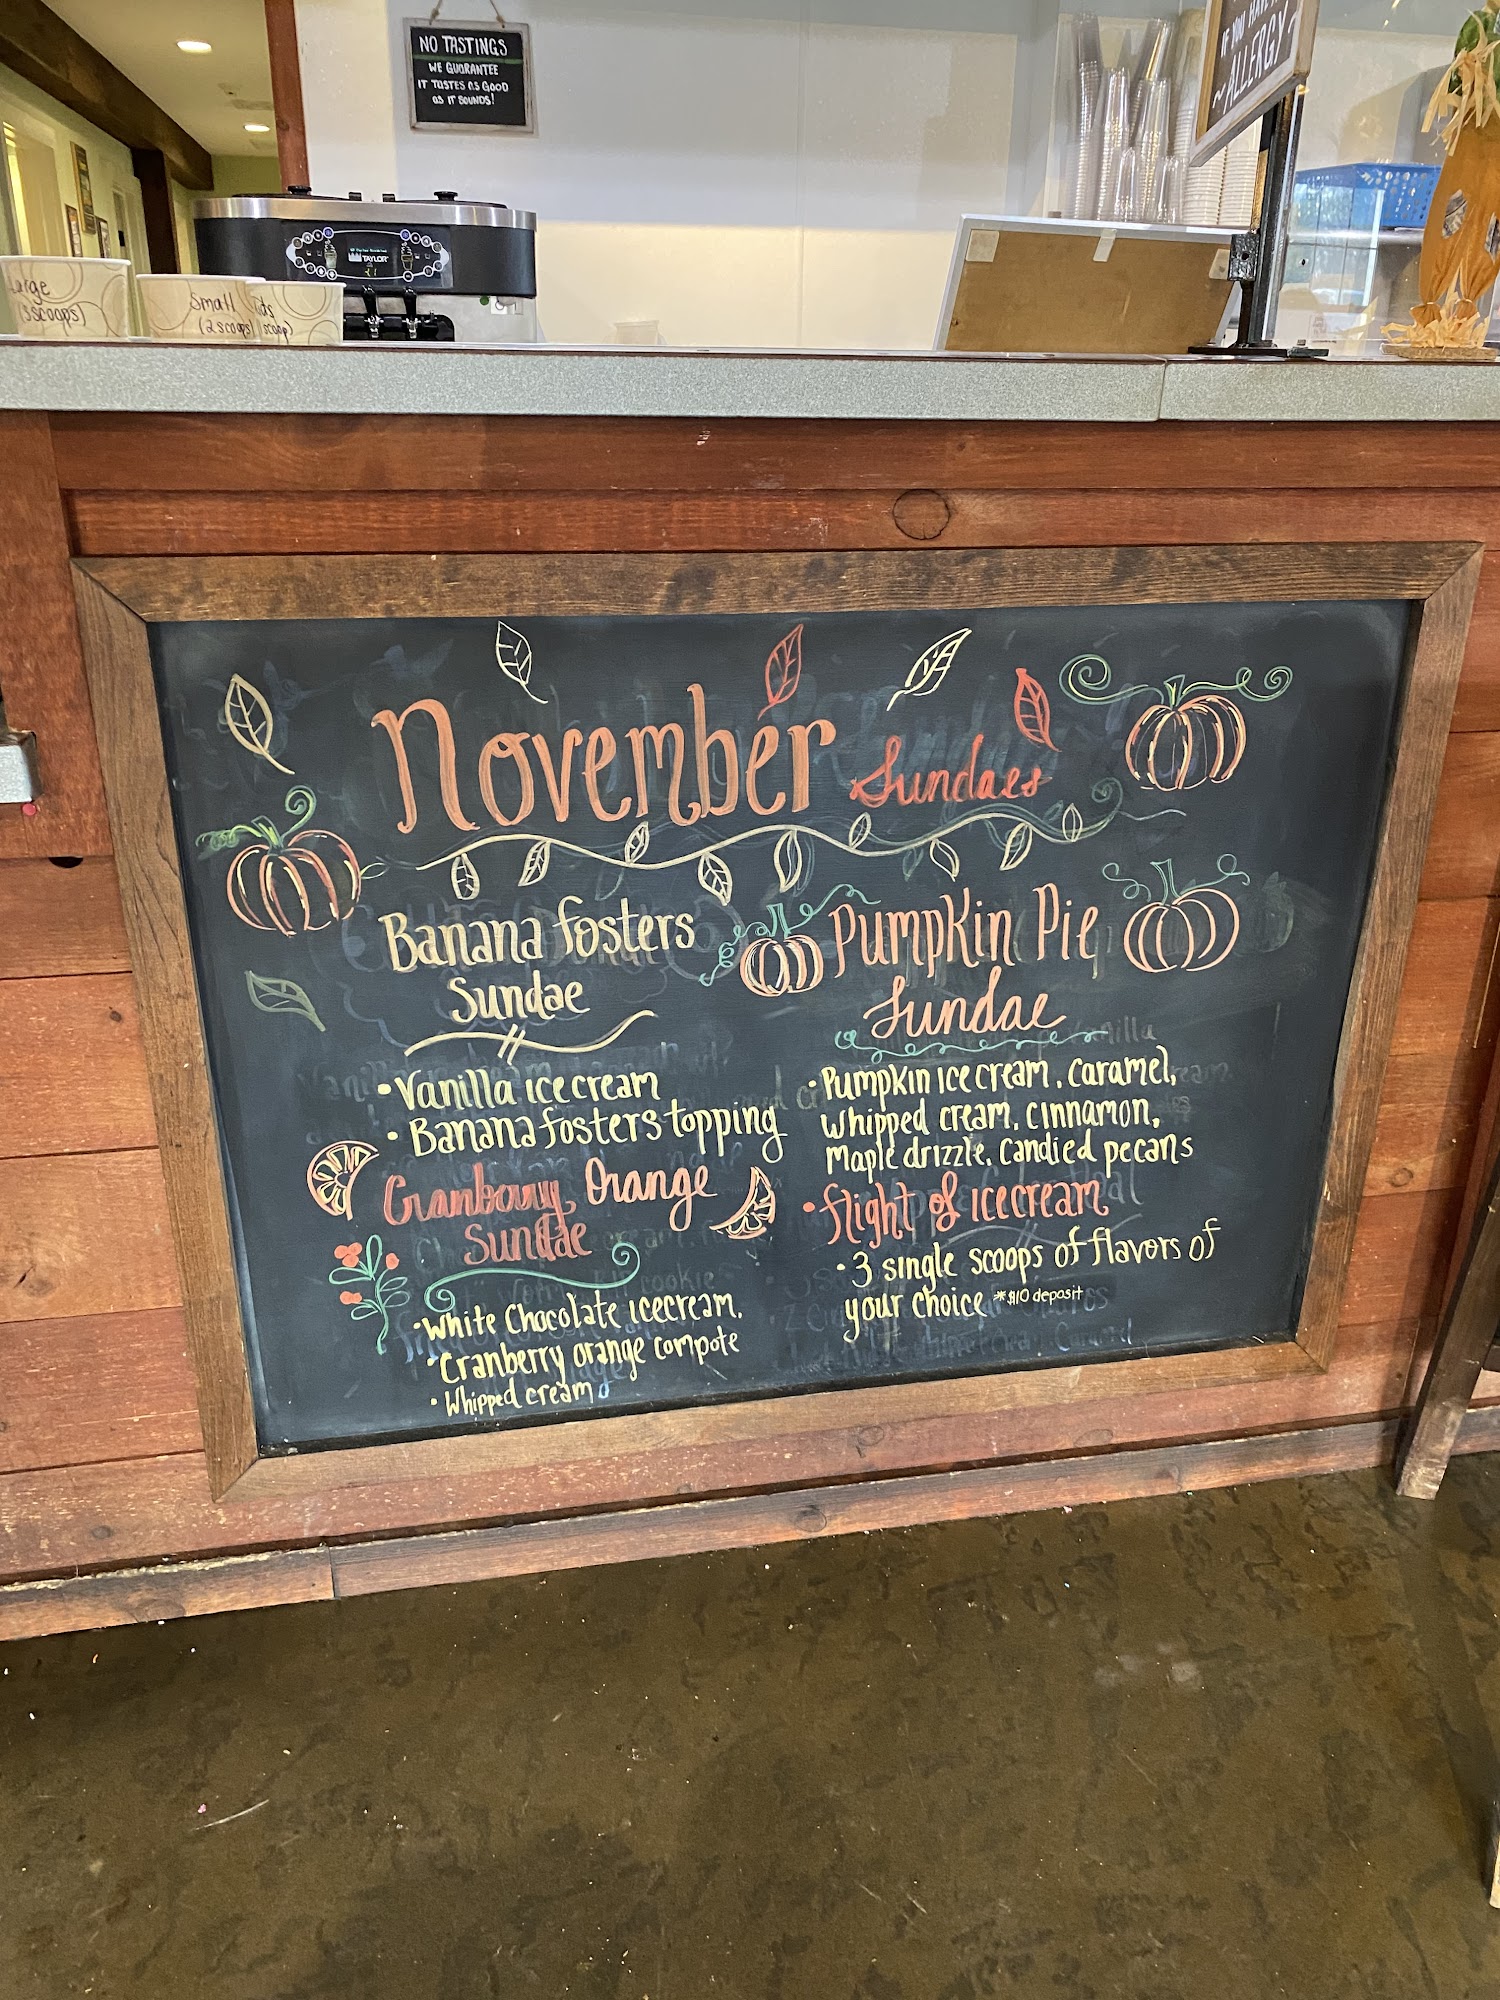 NO TASTINGS
WE GUARANTEE
IT TASTES AS GOOD
AS IT SOUNDS!
IF YOU HAVE
~ALLERGY~
TAYLOR
Large
(3 scoops)
Small
(2 scoops)
scoop)
November Sundaes
Banana fosters
Sundae
• Vanilla ice cream
• Banana fosters topping
Cranberry Orange
Sundae
• White Chocolate icecream,
• Cranberry orange compote
• Whipped cream
Pumpkin Pie
Sundae
• Pumpkin ice cream, caramel,
whipped cream, cinnamon,
Maple drizzle, candied pecans
• flight of icecream
• 3 single scoops of flavors of
your choice *$10 deposit